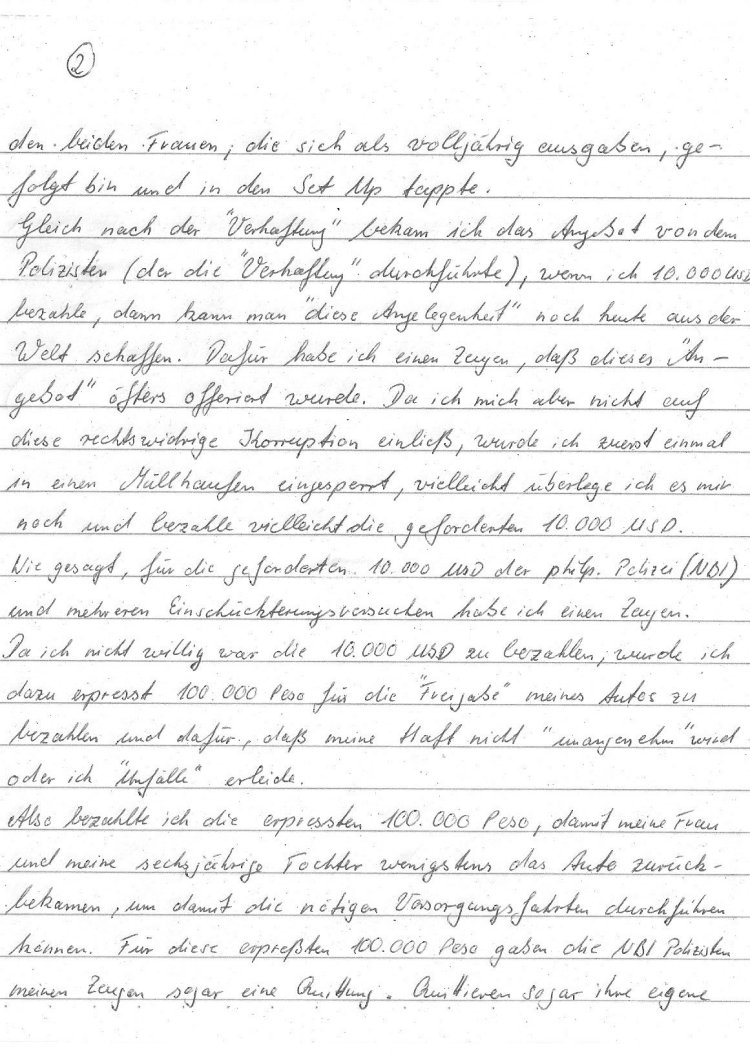 2
den beiden Frauen, die sich als volljährig ausgaben, ge-
folgt bin und in den Set Up tappte.
Gleich nach der "Verhaftung" bekam ich das Angebot von dem
Polizisten (der die "Verhaftung" durchführte), wenn ich 10.000 USD
bezahle, dann kann man "diese Angelegenheit" noch heute aus der
Welt schaffen. Dafür habe ich einen Zeugen, daß dieses "An-
gebot" öfters offeriert wurde. Da ich mich aber nicht auf
diese rechtswidrige Korruption einließ, wurde ich zuerst einmal
in einen Müllhaufen eingesperrt, vielleicht überlege ich es mir
noch und bezahle vielleicht die geforderten 10.000 USD.
Wie gesagt, für die geforderten 10.000 USD der philp. Polizei (NBI)
und mehreren Einschückterungsversuchen habe ich einen Zeugen.
Da ich nicht willig war die 10.000 USD zu bezahlen, wurde ich
dazu erpresst 100.000 Peso für die "Freigabe" meines Autos zu
bezahlen und dafür, daß meine Haft nicht "unangenehm" wird
oder ich "Unfälle" erleide.
Also bezahlte ich die erpressten 100.000 Peso, damit meine Frau
und meine sechsjährige Tochter wenigstens das Auto zurück-
bekamen, um damit die nötigen Versorgungsfahrten durchführen
können. Für diese erpreßten 100.000 Peso gaben die NBI Polizisten
meinen Zeugen sogar eine Quittung. Quittieren sogar ihre eigene